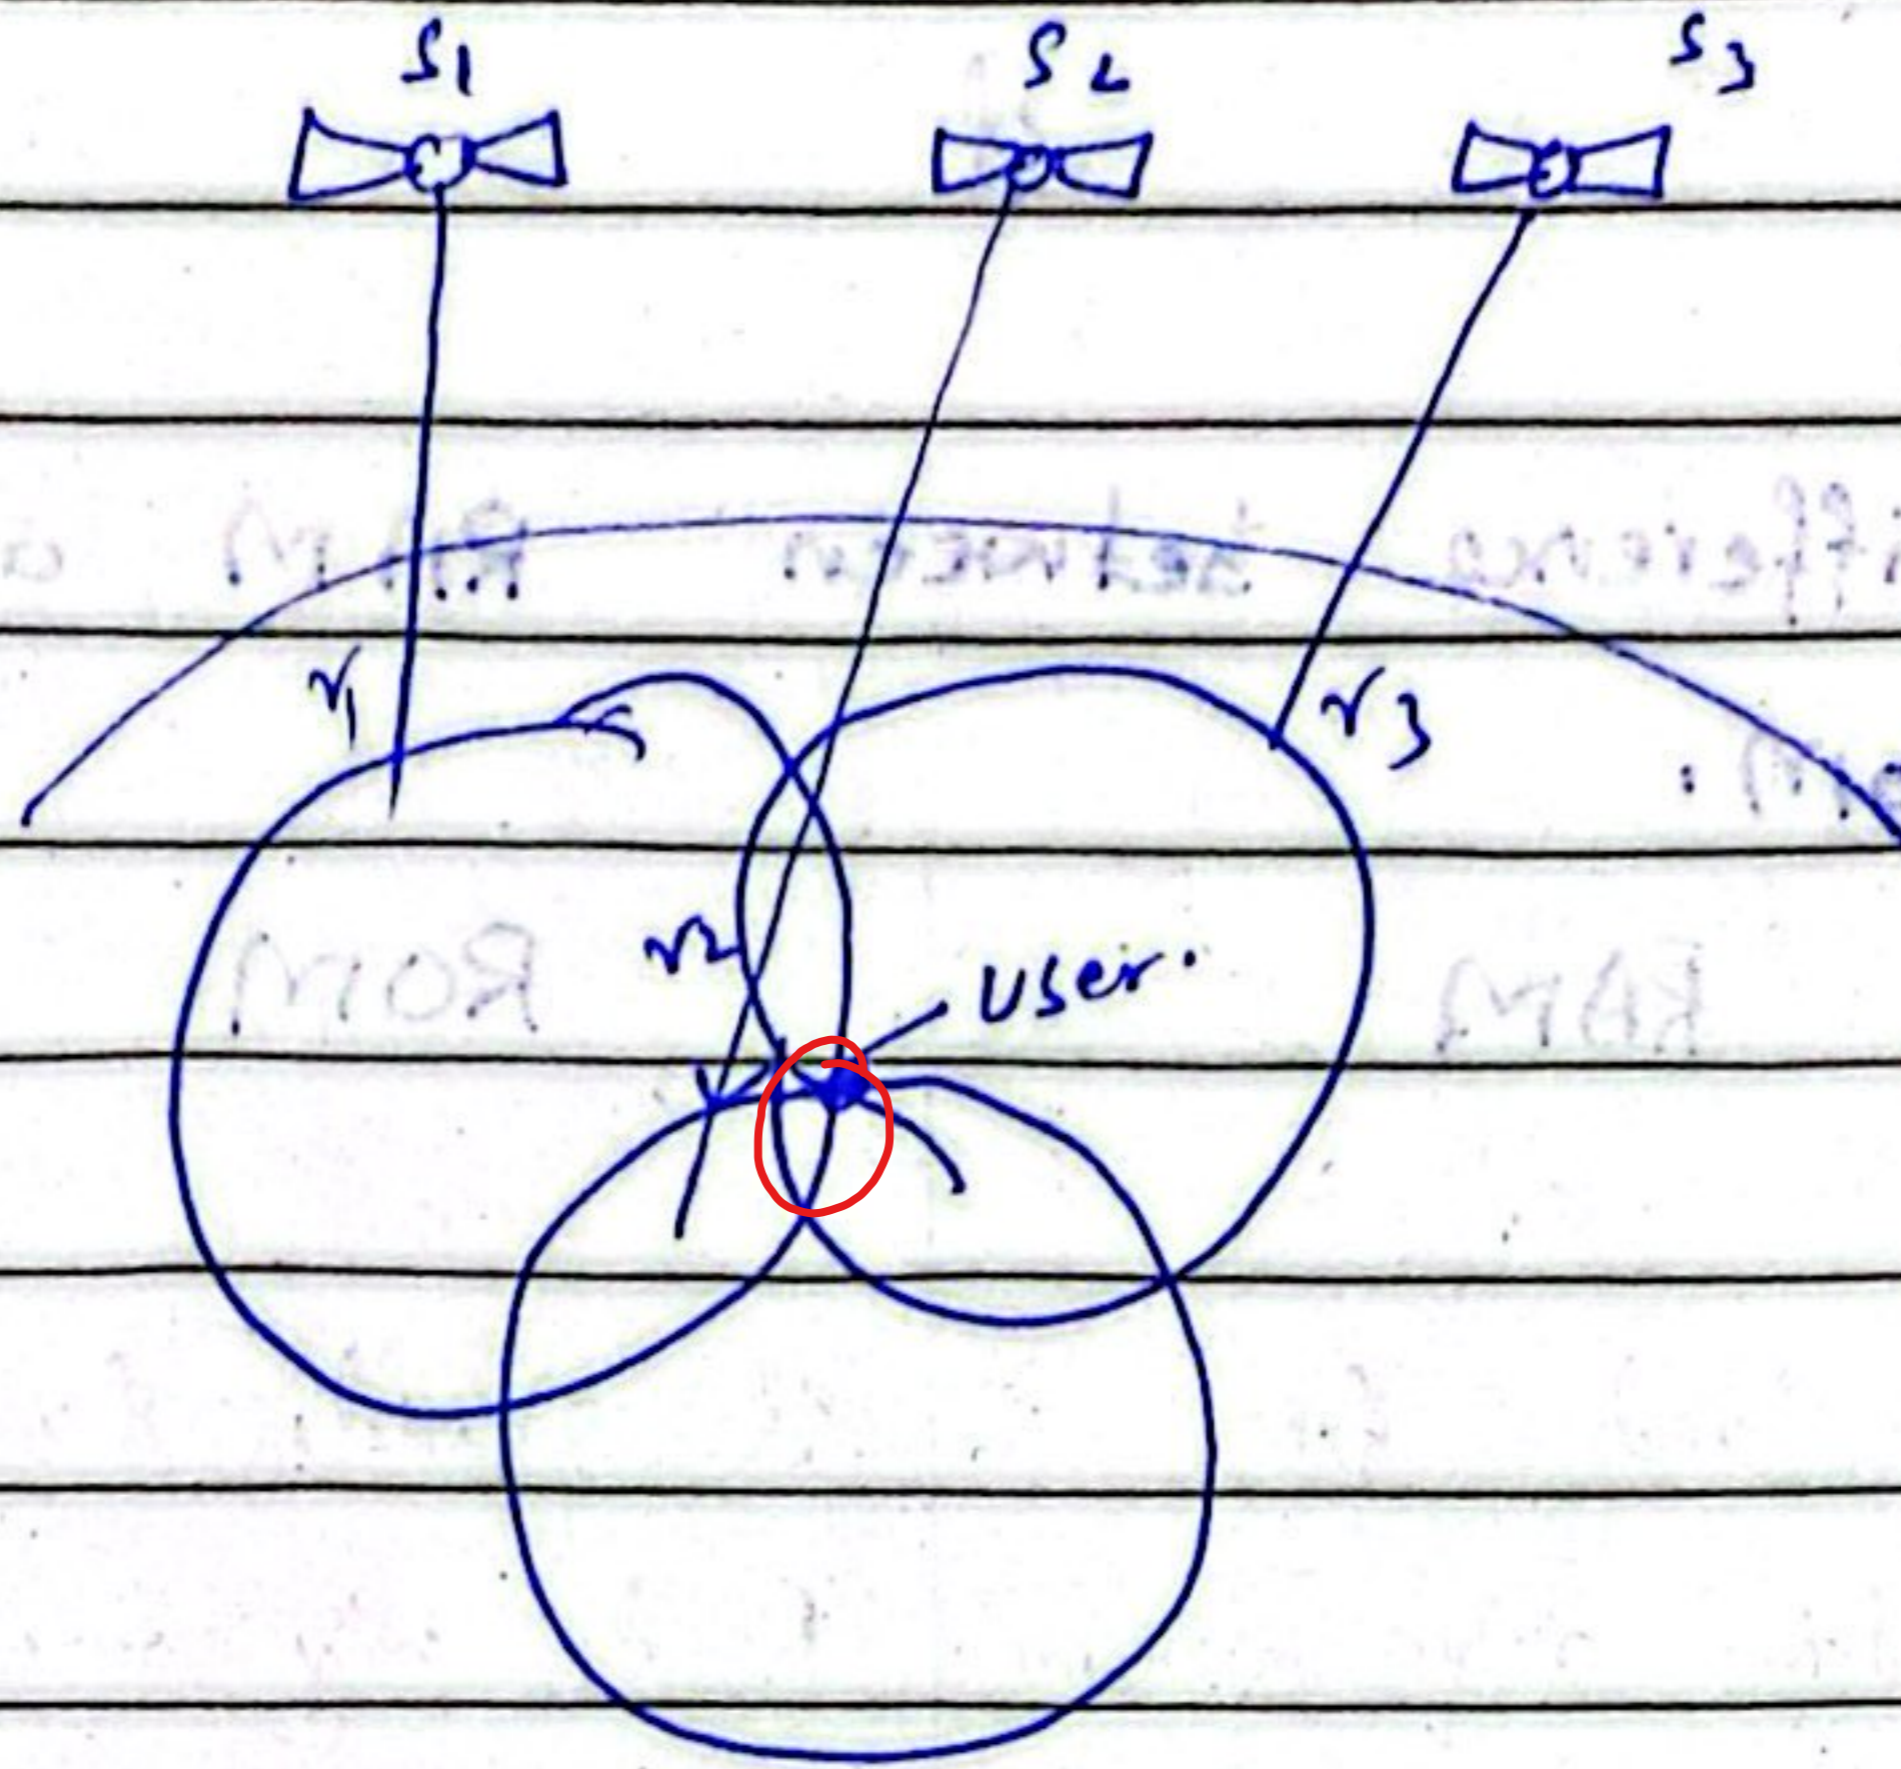 S1 S2 S3
r1
r3
r2
User.